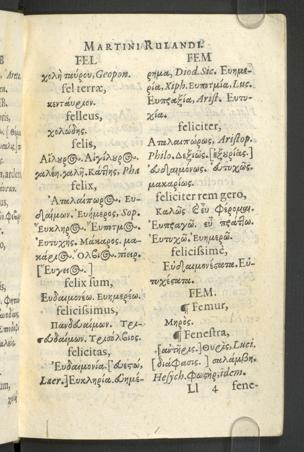 MARTINI RULANDI.
FEL
χολὴ ταύρου, Geopon.
fel terræ,
κενταύριον.
felleus,
χολώδης.
felis,
Αἴλουρος. Αἰγίλουρος.
γαλέη. γαλῆ. Κάτης. Pha
felix,
Ἀταλαίπωρος. Ευ-
δαίμων. Εὐήμερος. Sop.
Εὔκληρος. Εὔποτμος.
Εὐτυχής. Μάκαρος. μα-
κάριος. Ὄλβιος.
felix sum,
Εὐδαιμονέω. Εὐημερέω.
felicissimus,
Πανδαίμων. Τρι-
felicitas,
Εὐδαιμονία.
Laer.] Εὐκληρία. Εὐημέ-
ρημα, Diod. Sic. Εὐημε-
ρία, Xiph. Εὐποτμία, Luc.
Εὐπραξία, Arist. Εὐτυ-
χία.
feliciter,
Ἀταλαιπώρως, Aristop.
Philo. Δεξιῶς.
εὐδαιμόνως. εὐτυχῶς.
μακαρίως.
feliciter rem gero,
Καλῶς
Εὐτυχῶ. Εὐημερῶ.
felicissimè,
Εὐδαιμονέστατα. Εὐ-
τυχέστατα.
FEM.
¶ Femur,
Μηρός.
¶ Fenestra,
Θυρὶς, Luci.
[διάφασις.]
Hesych. Φωστὴρ, idem.
Ll 4 fene-